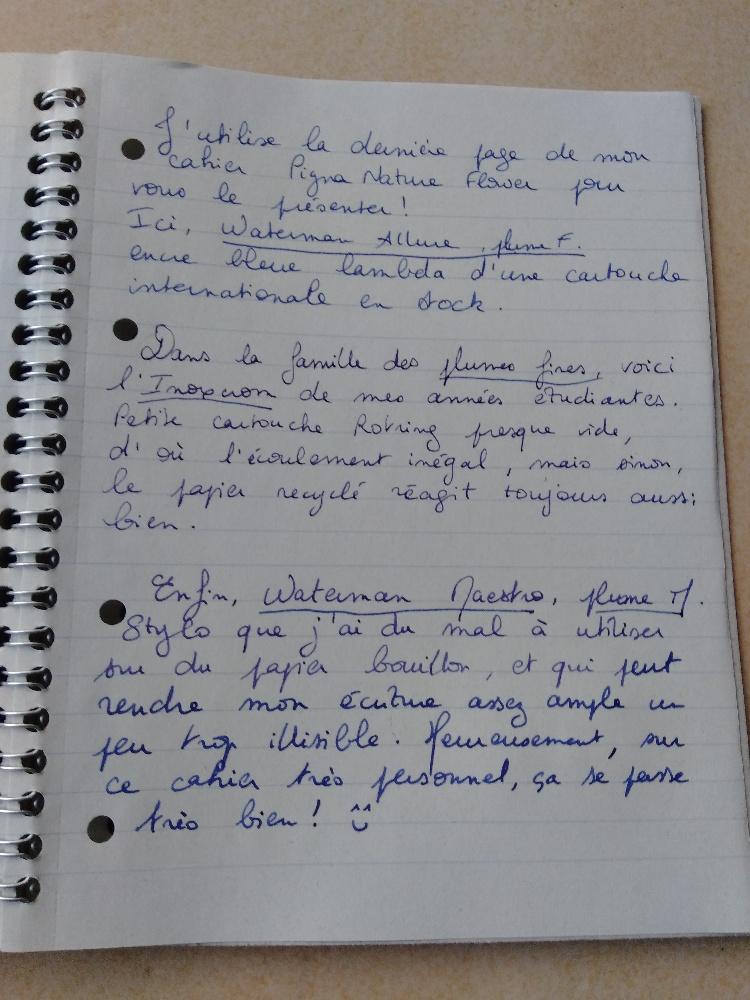 J'utilise la dernière page de mon
cahier Pigna Nature Flower pour
vous le présenter !
Ici, Waterman Allure, plume F.
encre bleue lambda d'une cartouche
internationale en stock.
Dans la famille des plumes fines, voici
l'Inoxcrom de mes années étudiantes.
Petite cartouche Rotring presque vide,
d'où l'écoulement inégal, mais sinon,
le papier recyclé réagit toujours aussi
bien.
Enfin, Waterman Maestro, plume M.
Stylo que j'ai du mal à utiliser
sur du papier brouillon, et qui peut
rendre mon écriture assez ample un
peu trop illisible. Heureusement, sur
ce cahier très personnel, ça se passe
très bien ! ^^